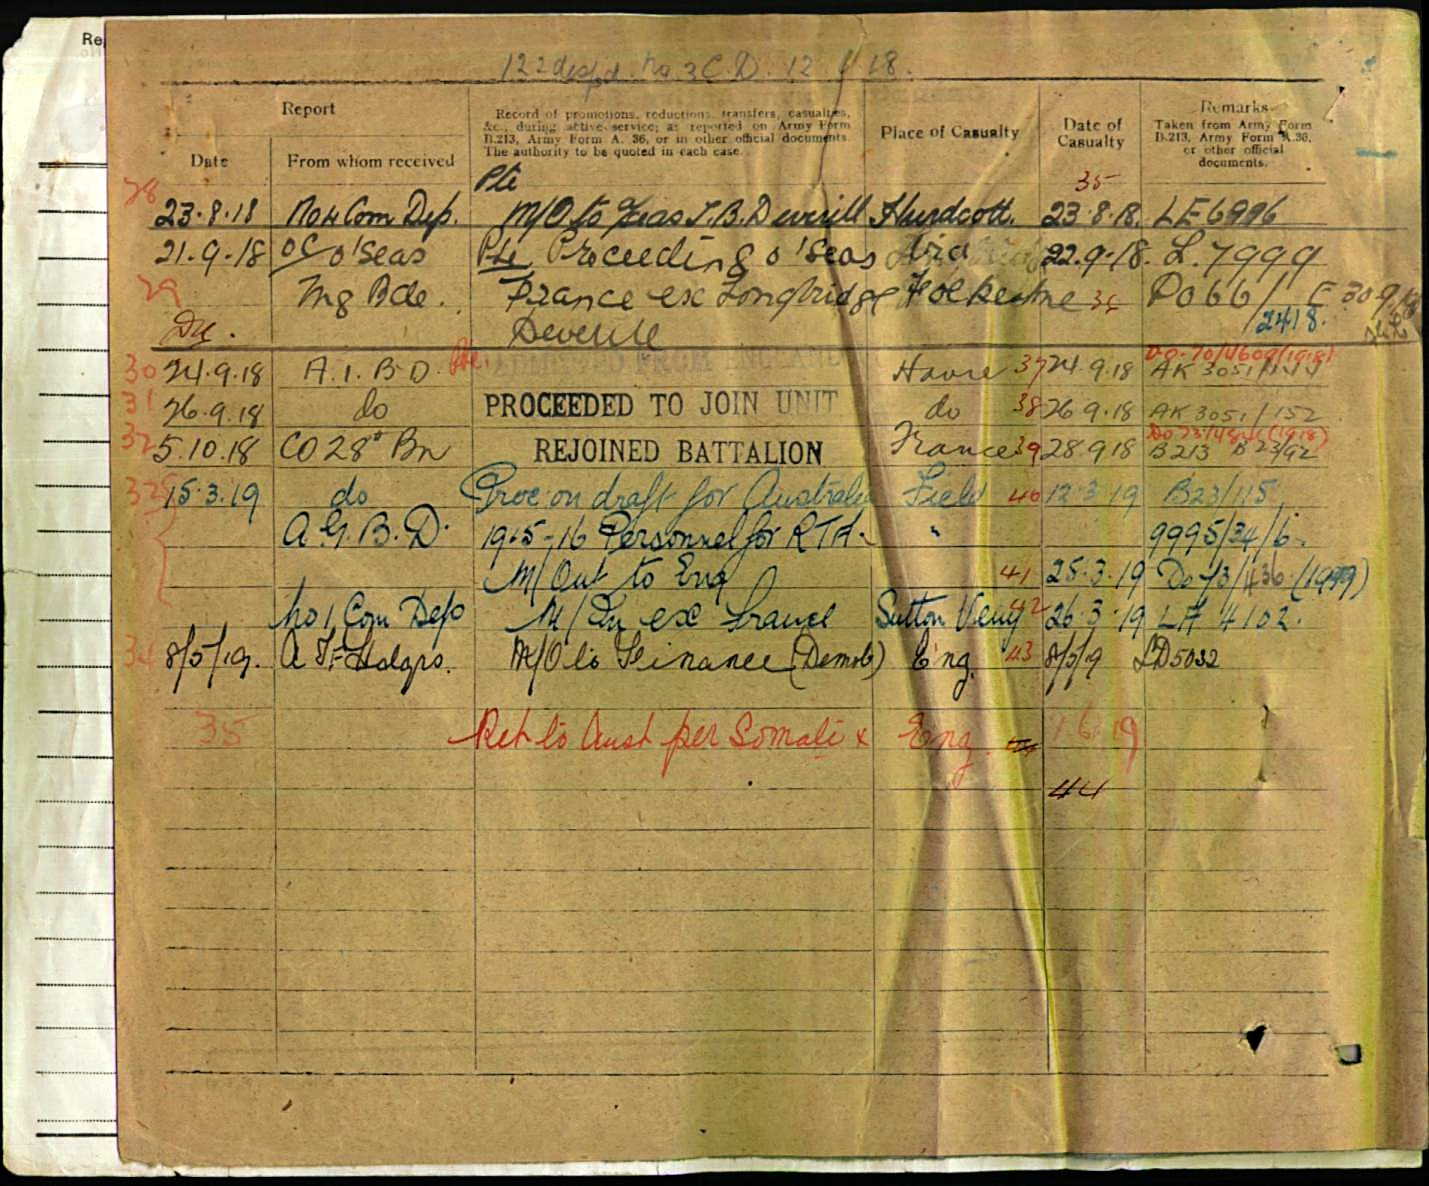 Re
122 despd. No. 3 C.D. 12 18.
Report
Date
From whom received
Record of promotions, reductions, transfers, casualties,
&c., during active service, as reported on Army Form
B.213, Army Form A. 36, or in other official documents.
The authority to be quoted in each case.
Place of Casualty
Date of
Casualty
Remarks
Taken from Army Form
B.213, Army Form A.36,
or other official
documents.
Pte
35
28
23.8.18 No 4 Com Dep. M/O to T.B. Deverill Hurdcott. 23.8.18. LE6996
21.9.18 OC O'Seas Pte Proceeding o'Seas via 22.9.18. L.7999
29 Tng Bde. France ex Longbridge Folkestone 36 Do 66/ E 30 9/18
Deverill 2418.
30 24.9.18 A.I.B.D. Pte. FROM ENGLAND Havre 37 24.9.18 DO.70/4609(1918) AK 3051/
31 26.9.18 do PROCEEDED TO JOIN UNIT do 38 26.9.18 AK3051/152
32 5.10.18 CO 28th Bn REJOINED BATTALION France 39 28.9.18 B213 B23/92
15.3.19 do Proc on draft for Australia Field 40 12.3.19 B23/115
A.G.B.D. 1915-16 Personnel for RTA. " 9995/34/6.
M/Out to Eng 41 25.3.19 Do 43/436 (1919)
No 1 Com Dep M/In ex France Sutton Veny 42 26.3.19 LA 4102.
34 8/5/19. AIF Hdqrs. M/O to Finance (Demob) Eng. 43 8/5/19 LD5032
35 Ret to Aust per Somali x Eng. 1.6.19
44